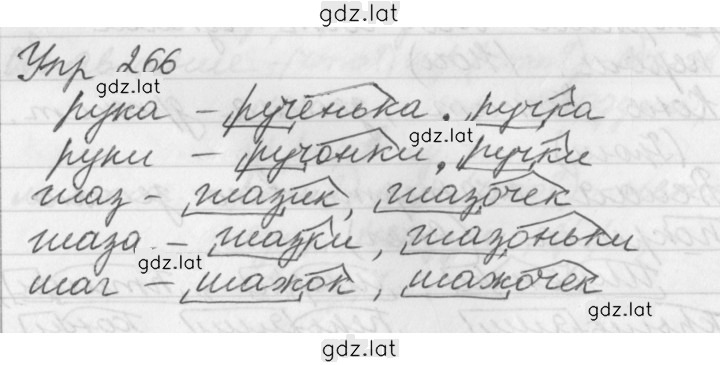 gdz.lat
Упр 266
gdz.lat
рука - рученька, ручка
gdz.lat
руки - ручонки, ручки
глаз - глазик, глазочек
глаза - глазки, глазоньки
gdz.lat
шаг - шажок, шажочек
gdz.lat
gdz.lat